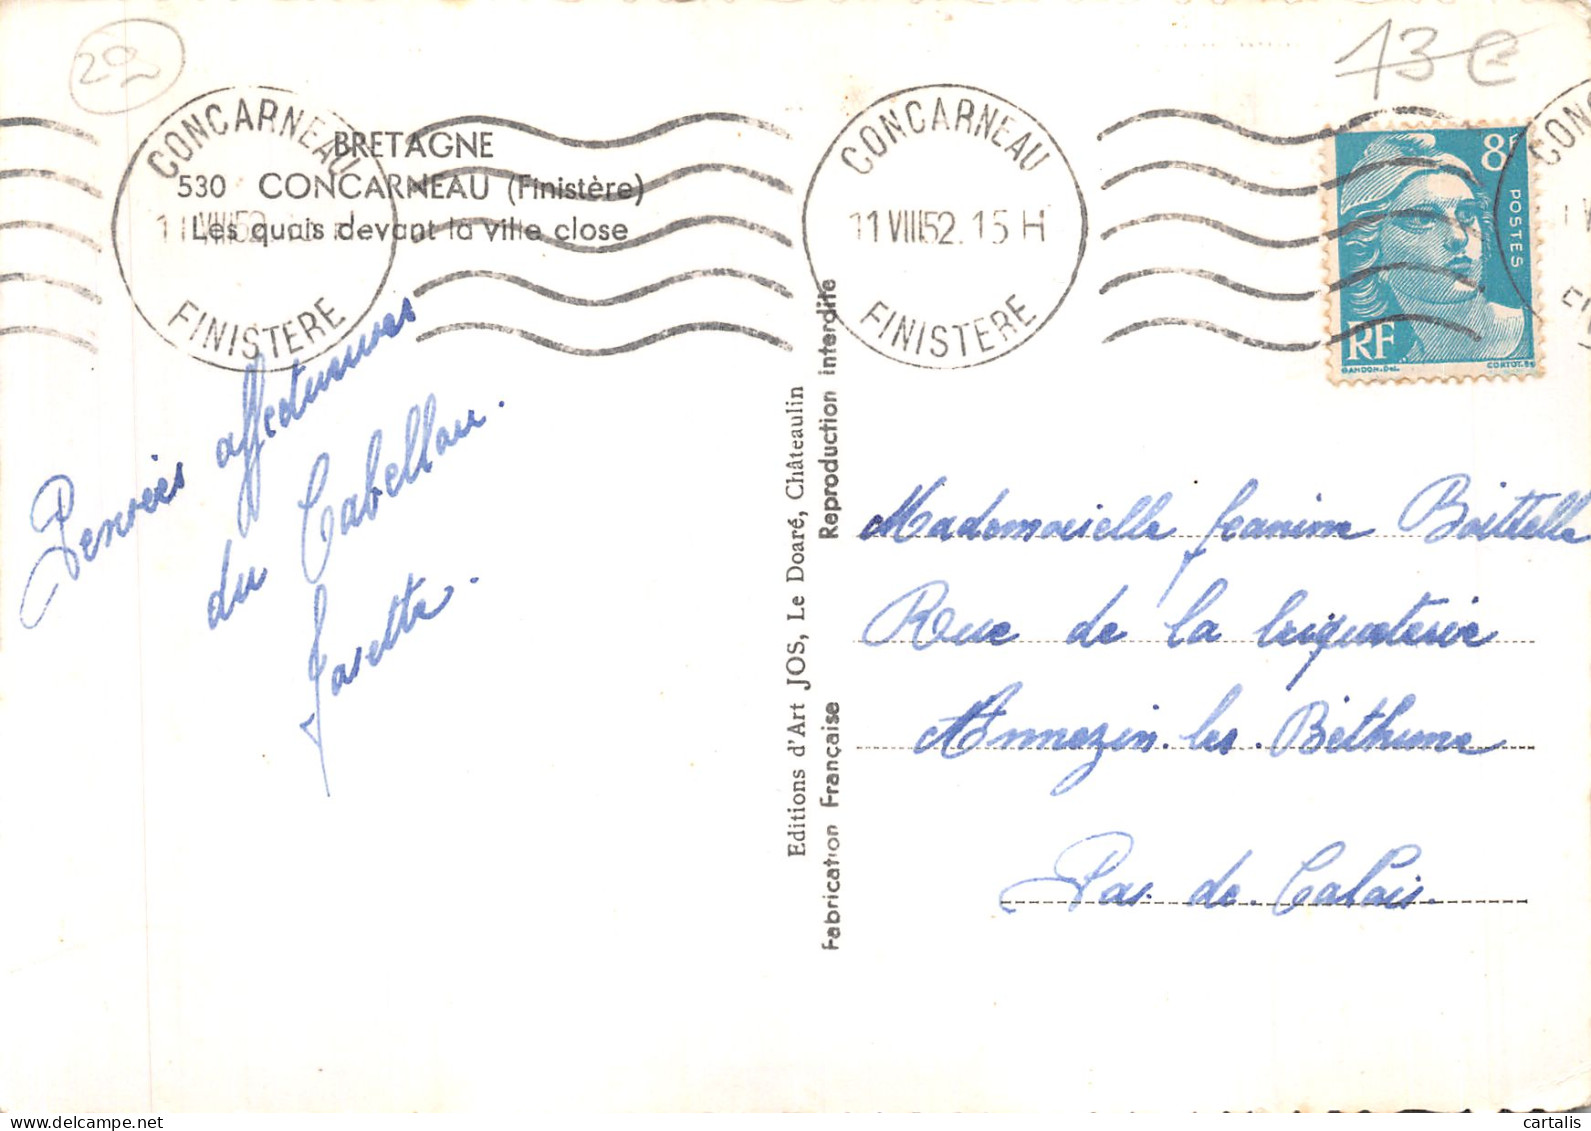 29
13€
BRETAGNE
530 CONCARNEAU (Finistère)
Les quais devant la ville close
CONCARNEAU
11 VIII 52
FINISTERE
CONCARNEAU
11 VIII 52. 15 H
FINISTERE
8F
POSTES
RF
GANDON.DEL.
CORTOT.SC
CON
Pensées affectueuses
du Cabellou.
Josette.
Editions d'Art JOS, Le Doaré, Châteaulin
Fabrication Française Reproduction interdite
Mademoiselle Jeanine Boittelle
Rue de la briqueterie
Annezin. les. Béthune
Pas. de. Calais.
cartalis